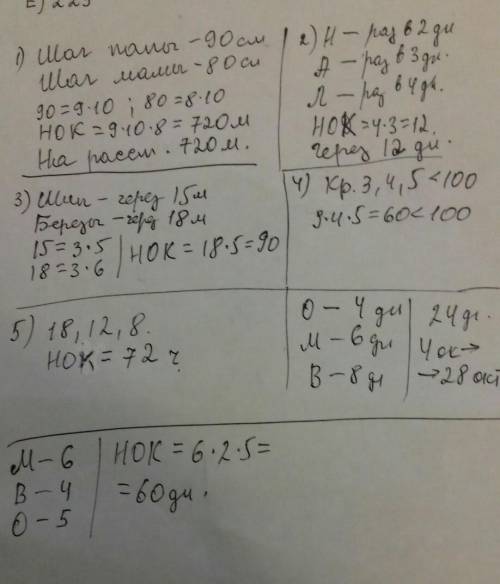 1) Шаг папы - 90 см
Шаг мамы - 80 см
90 = 9·10 ; 80 = 8·10
НОК = 9·10·8 = 720 м
На расст. 720 м.
2) Н – раз в 2 дн
А – раз в 3 дн.
Л – раз в 4 дн.
НОК = 4·3 = 12.
через 12 дн.
3) Шип – через 15 м
Березы – чер 18 м
15 = 3·5
18 = 3·6
НОК = 18·5 = 90
4) Кр. 3, 4, 5 < 100
3·4·5 = 60 < 100
5) 18, 12, 8.
НОК = 72 ч
О – 4 дн
М – 6 дн
В – 8 дн
24 дн.
4 ок →
→ 28 окт
М – 6
В – 4
О – 5
НОК = 6·2·5 =
= 60 дн.